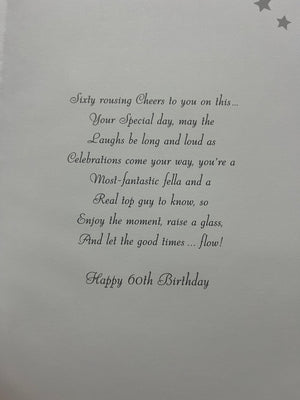 Sixty rousing Cheers to you on this...
Your Special day, may the
Laughs be long and loud as
Celebrations come your way, you're a
Most-fantastic fella and a
Real top guy to know, so
Enjoy the moment, raise a glass,
And let the good times ... flow!
Happy 60th Birthday